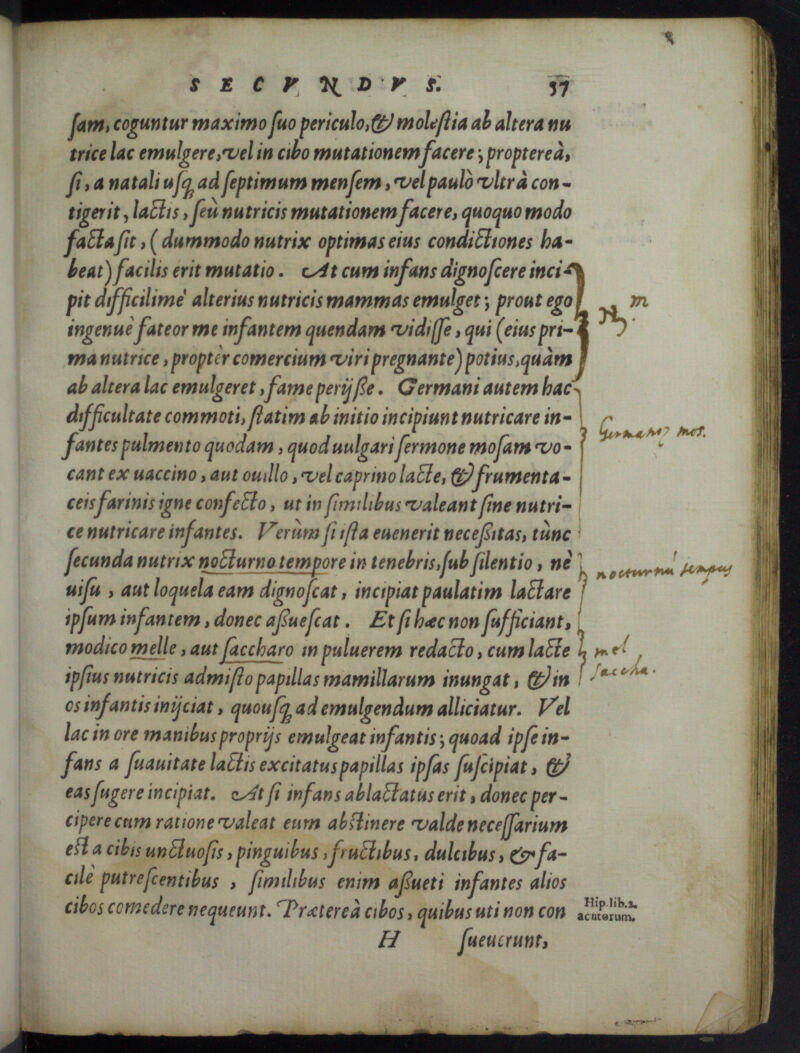 SECVNDVS. 57
ſam, coguntur maximo ſuo periculo, & moleſtia ab altera nu
trice lac emulgere, vel in cibo mutationem facere; propterea,
ſi, a natali uſq; ad ſeptimum menſem, vel paulò vltrà con-
tigerit, lactis, ſeù nutricis mutationem facere, quoquo modo
facta ſit, (dummodo nutrix optimas eius condictiones ha-
beat) facilis erit mutatio. At cum infans dignoſcere inci-
pit difficilimè alterius nutricis mammas emulget; prout ego
m
ingenuè fateor me infantem quendam vidiſſe, qui (eius pri-
ma nutrice, proptèr comercium viri pregnante) potius, quàm
ab altera lac emulgeret, fame perijſſe. Germani autem hac
difficultate commoti, ſtatim ab initio incipiunt nutricare in-
fantes pulmento quodam, quod uulgari ſermone moſam vo-
Germano2 mos.
cant ex uaccino, aut ouillo, vel caprino lacte, & frumenta-
ceis farinis igne confecto, ut in ſimilibus valeant ſine nutri-
ce nutricare infantes. Verùm ſi iſta euenerit neceſsitas, tùnc
ſecunda nutrix nocturno tempore in tenebris, ſub ſilentio, nè
nocturnū tempus
uiſu, aut loquela eam dignoſcat, incipiat paulatim lactare
ipſum infantem, donec aſsueſcat. Et ſi hæc non ſufficiant,
modico melle, aut ſaccharo in puluerem redacto, cum lacte
mel
ipſius nutricis admiſto papillas mamillarum inungat, & in
saccha.
os infantis inijciat, quouſq; ad emulgendum alliciatur. Vel
lac in ore manibus proprijs emulgeat infantis; quoad ipſe in-
fans a ſuauitate lactis excitatus papillas ipſas ſuſcipiat, &
eas ſugere incipiat. At ſi infans ablactatus erit, donec per-
cipere cum ratione valeat eum abſtinere valde neceſſarium
eſt a cibis unctuoſis, pinguibus, fructibus, dulcibus, & fa-
cilè putreſcentibus, ſimilibus enim aſsueti infantes alios
cibos comedere nequeunt. Præterea cibos, quibus uti non con
Hip. lib. 2.
acutorum.
H ſueuerunt,